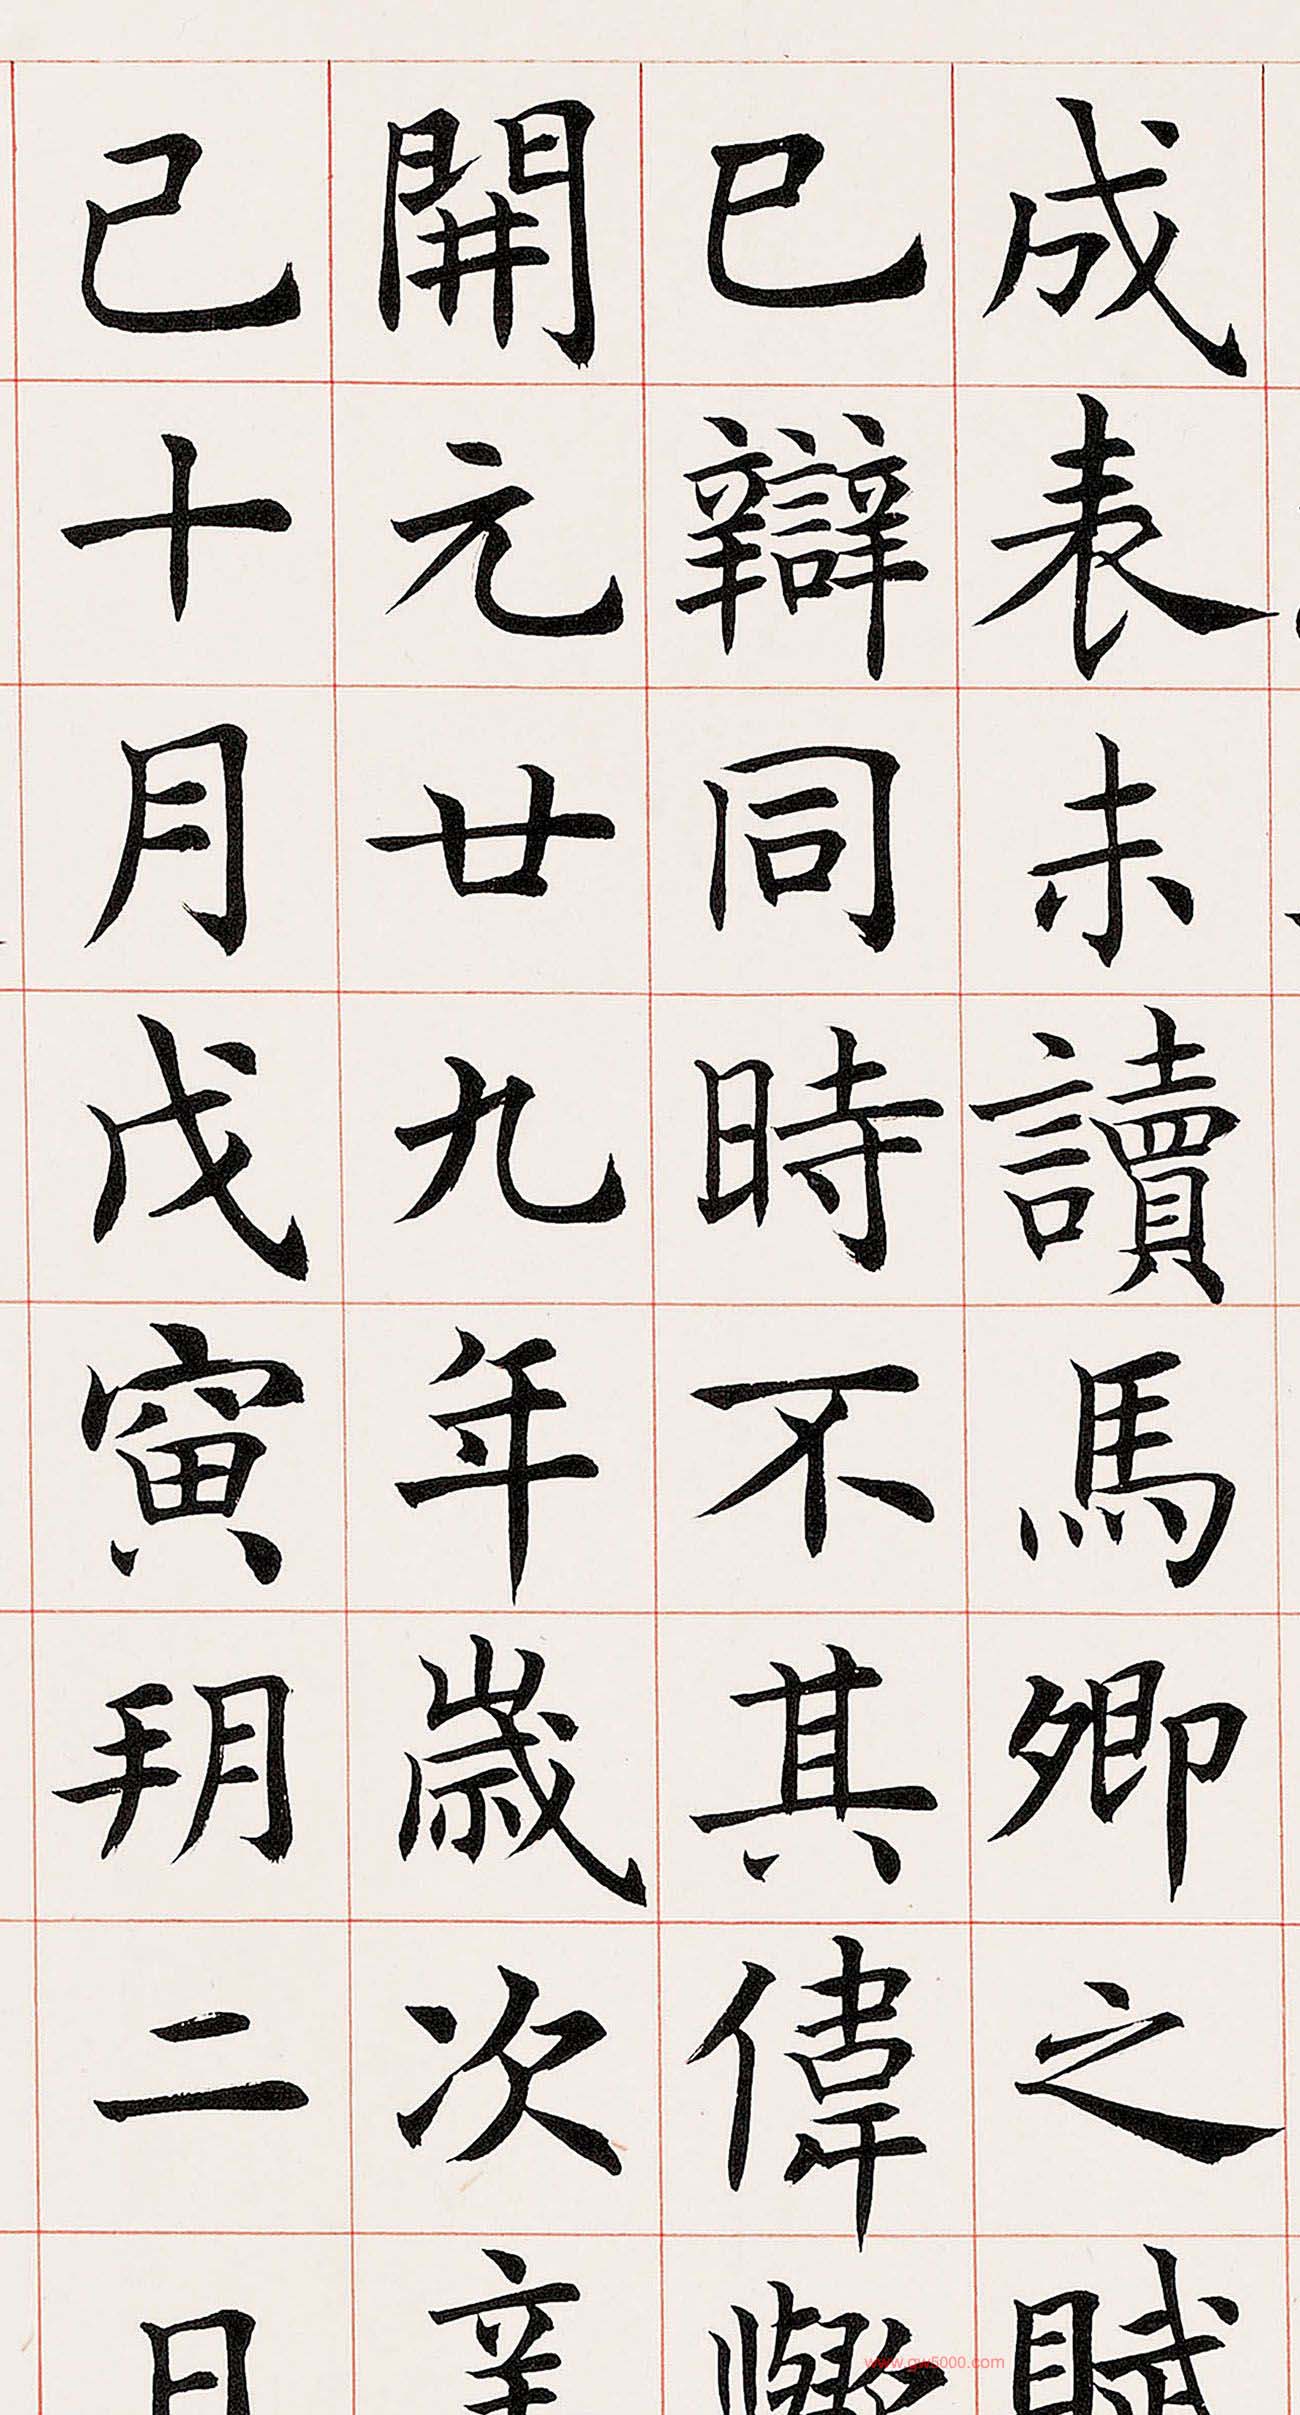 成表未讀馬卿之賦
巳辯同時不其偉
開元廿九年歲次辛
己十月戊寅朔二日
www.gw5000.com